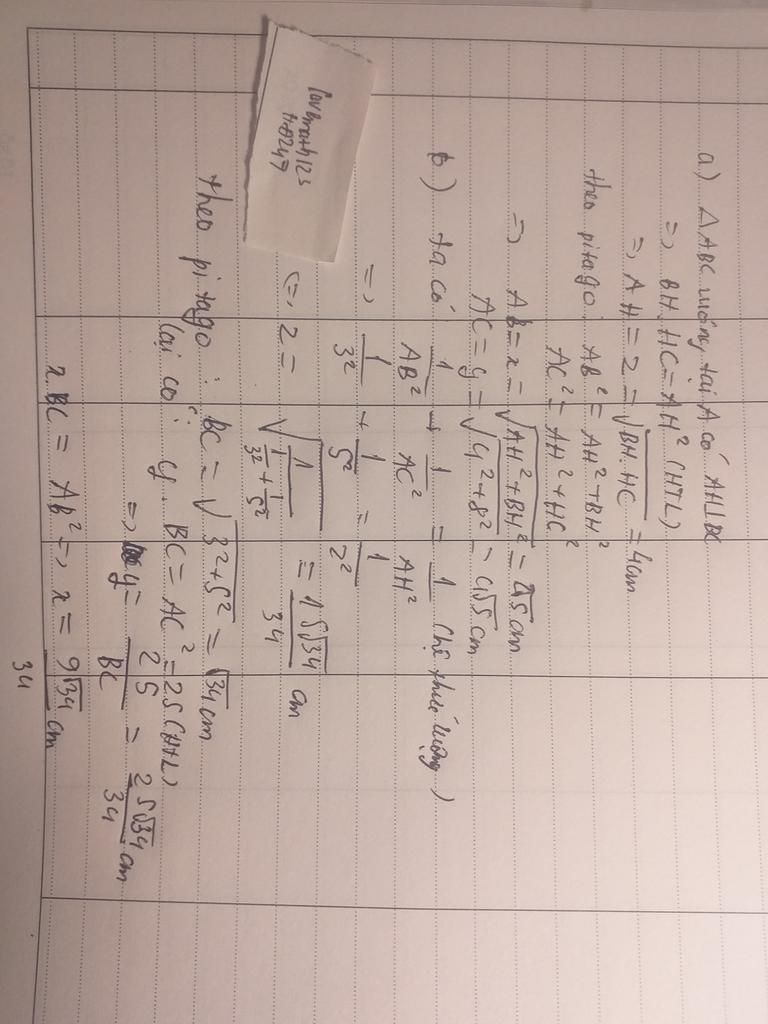 a) △ABC vuông tại A có AH⊥BC
=> BH.HC = AH² (HTL)
=> AH = z = √BH.HC = 4cm
theo pitago: AB² = AH² + BH²
AC² = AH² + HC²
=> AB = x = √AH² + BH² = 2√5 cm
AC = y = √4² + 8² = 4√5 cm
b) ta có 1/AB² + 1/AC² = 1/AH² (hệ thức lượng)
=> 1/3² + 1/5² = 1/z²
<=> z = √1/(1/3² + 1/5²) = 15√34/34 cm
theo pitago: BC = √3² + 5² = √34 cm
lại có: y.BC = AC² = 25 (HTL)
=> y = 25/BC = 25√34/34 cm
x.BC = AB² => x = 9√34/34 cm
lovemath123